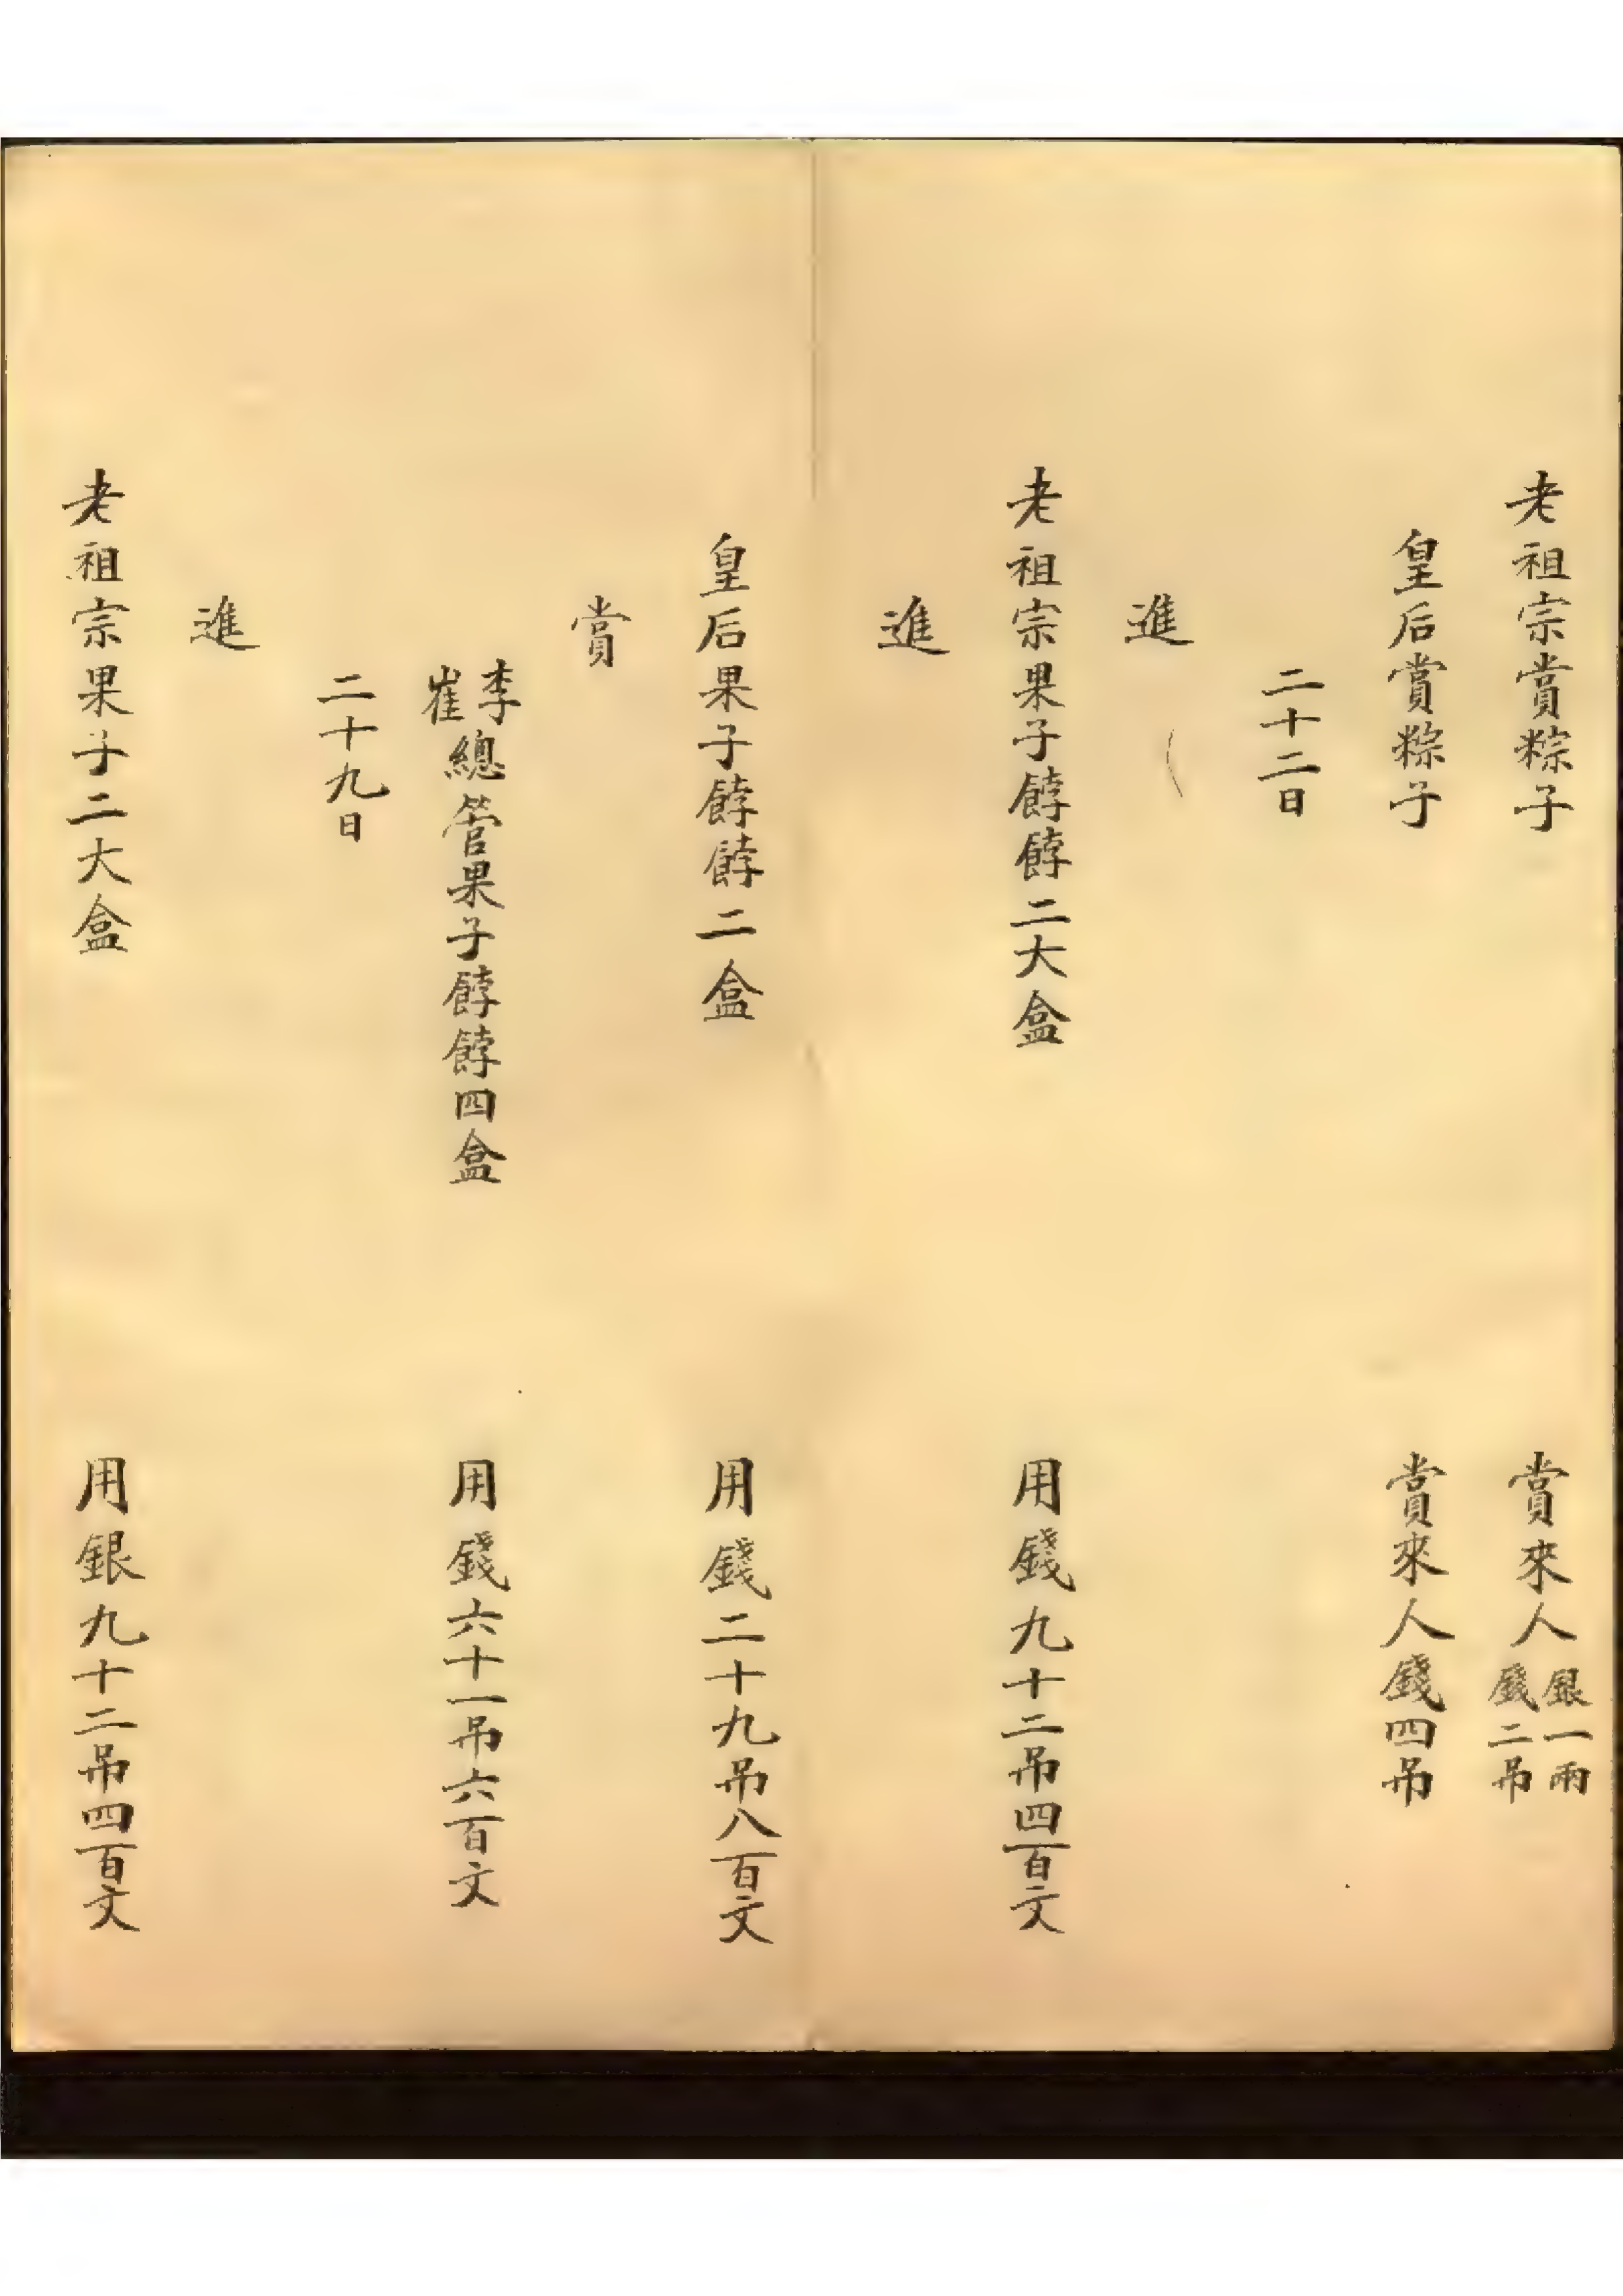 老祖宗賞粽子 賞來人銀一兩錢二吊
皇后賞粽子 賞來人錢四吊
二十二日
進
老祖宗果子餑餑二大盒 用錢九十二吊四百文
進
皇后果子餑餑二盒 用錢二十九吊八百文
賞
李崔總管果子餑餑四盒 用錢六十一吊六百文
二十九日
進
老祖宗果子二大盒 用銀九十二吊四百文